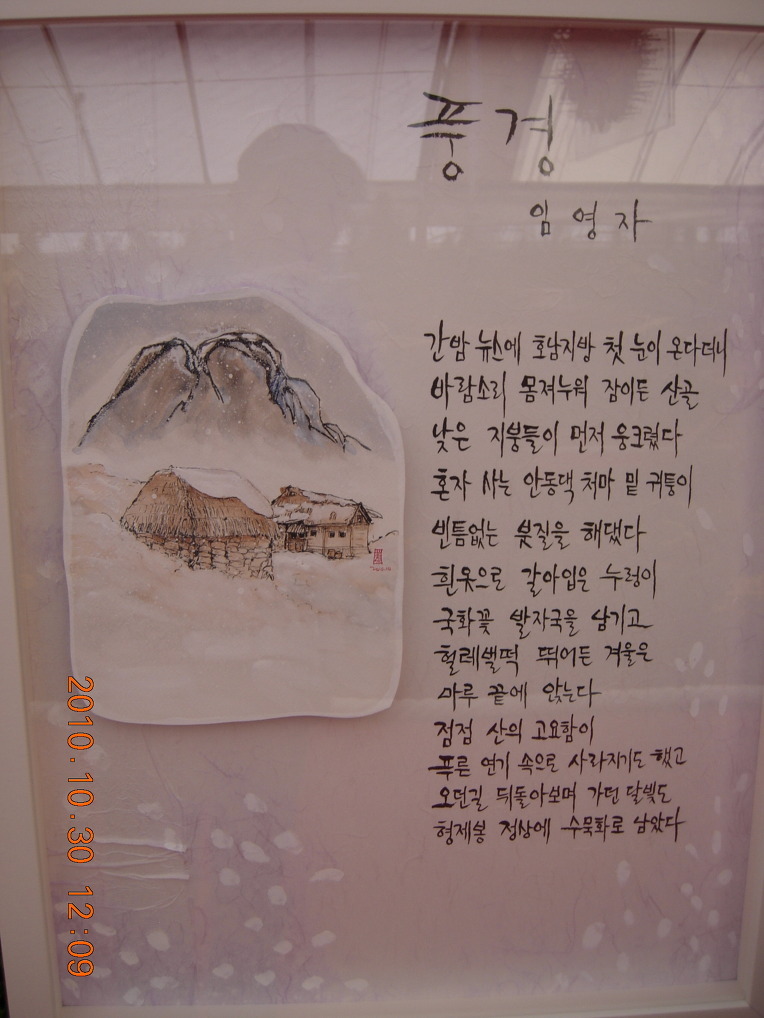 풍경
임영자
간밤 뉴스에 호남지방 첫 눈이 온다더니
바람소리 몸져누워 잠이든 산골
낮은 지붕들이 먼저 웅크렸다
혼자 사는 안동댁 처마 밑 귀퉁이
빈틈없는 붓질을 해댔다
흰옷으로 갈아입은 누렁이
국화꽃 발자국을 남기고
헐레벌떡 뛰어든 겨울은
마루 끝에 앉는다
점점 산의 고요함이
푸른 연기 속으로 사라지기도 했고
오던길 뒤돌아보며 가던 달빛도
형제봉 정상에 수묵화로 남았다
2010.10.30 12:09